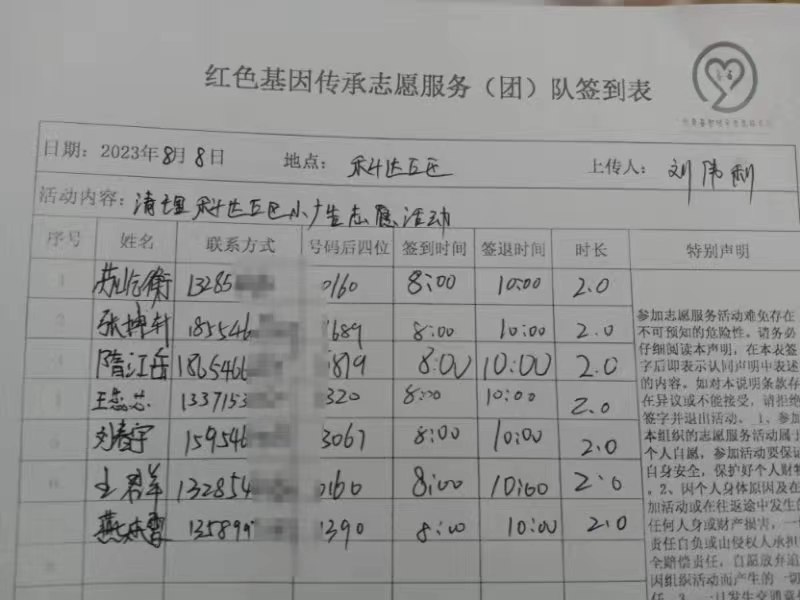 红色基因传承志愿服务（团）队签到表
日期：2023年8月8日 地点：科达五区 上传人：刘伟利
活动内容：清理科达五区小广告志愿活动
序号 姓名 联系方式 号码后四位 签到时间 签退时间 时长 特别声明
1 13285 0160 8:00 10:00 2.0
张博轩 185546 1689 8:00 10:00 2.0
隋江岳 1865466 5819 8:00 10:00 2.0
王蕊芯 1337153 1320 8:00 10:00 2.0
刘春宇 159546 3067 8:00 10:00 2.0
王君羊 132854 0160 8:00 10:00 2.0
135899 1390 8:00 10:00 2.0
参加志愿服务活动难免存在
不可预知的危险性。请务必
仔细阅读本声明，在本表签
字后即表示认同声明中表述
的内容。如对本说明条款存
在异议或不能接受，请拒绝
签字并退出活动。1、参加
本组织的志愿服务活动属于
个人自愿，参加活动要保证
自身安全，保护好个人财物
。2、因个人身体原因及在
加活动或在往返途中发生的
任何人身或财产损害，一
责任自负或由侵权人承担
全赔偿责任，自愿放弃追
因组织活动而产生的一切
任。3、一旦发生交通意外